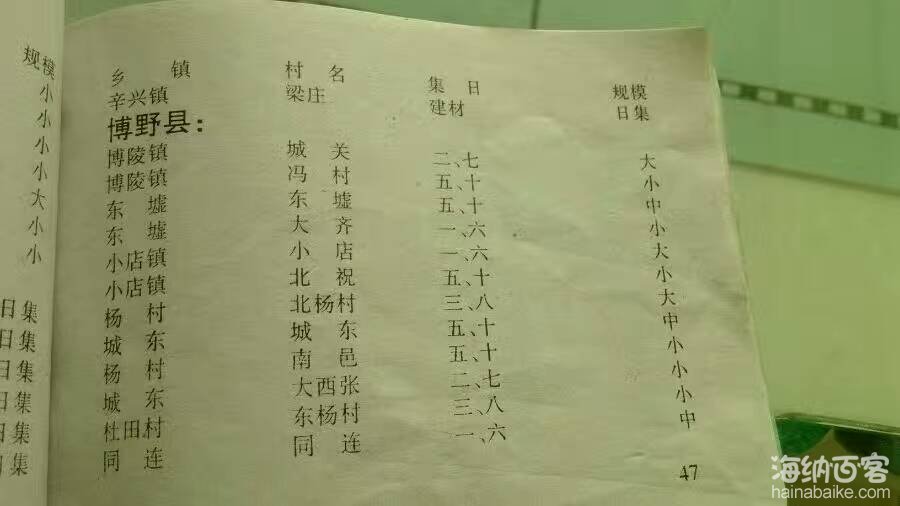 规模
小
小
小
小
大
小
小
日集
日集
日集
日集
日集
日集
乡镇 村名 集日 规模
辛兴镇 梁庄 建材 日集
博野县：
博陵镇 城关 二、七 大
博陵镇 冯村 五、十 小
东墟 东墟 五、十 中
东墟 大齐 一、六 小
小店镇 小店 一、六 大
小店镇 北祝 五、十 小
杨村 北杨村 三、八 大
城东 城东 五、十 中
杨村 南邑 五、十 小
城东 大西张 二、七 小
杜田村 东杨村 三、八 小
同连 同连 一、六 中
47
海纳百客
hainabaike.com